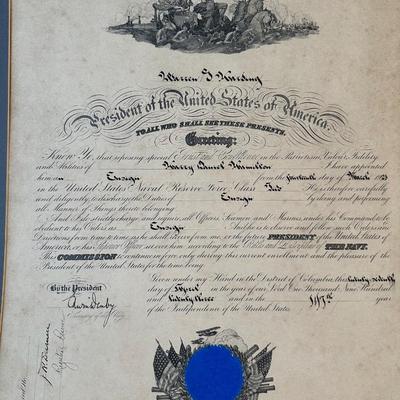 Warren G Harding
President of the United States of America.
TO ALL WHO SHALL SEE THESE PRESENTS,
Greeting:
Know Ye, that reposing special Trust and Confidence in the Patriotism, Valour, Fidelity
and Abilities of Harry Daniel Hamilton I have appointed
him an Ensign from the fourteenth day of March 1923
in the United States Naval Reserve Force Class Two He is therefore carefully
and diligently to discharge the duties of Ensign by doing and performing
all Manner of Things thereto belonging.
And I do strictly charge and require all Officers, Seamen and Marines, under his Command to be
obedient to his Orders as Ensign And he is to observe and follow such Orders and
Directions from time to time as he shall receive from me, or the future PRESIDENT of the United States of
America, or his Superior Officer set over him, according to the Rules and Discipline of THE NAVY.
This COMMISSION to continue in force only during his current enrollment and the pleasure of the
President of the United States for the time being.
Given under my Hand in the District of Columbia, this twenty-seventh
By the President day of April in the year of our Lord One Thousand Nine Hundred
Edwin Denby and twenty three and in the 147th year
of the Independence of the United States.